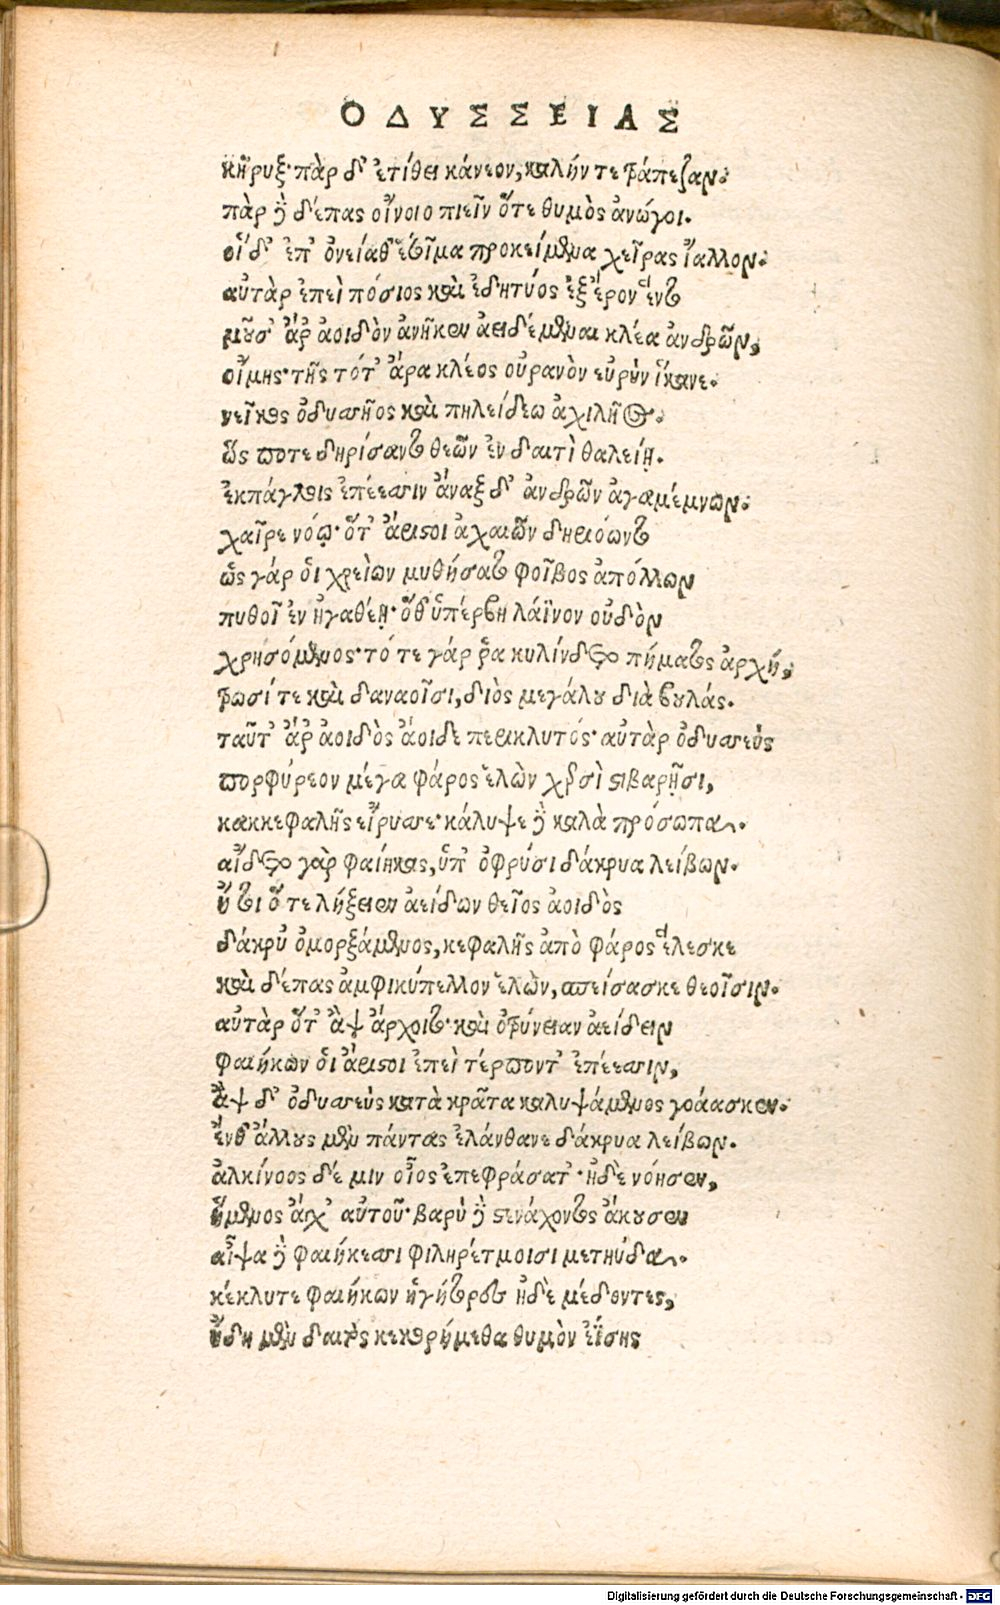 ΟΔΥΣΣΕΙΑΣ
κῆρυξ· πὰρ δ' ἐτίθει κάνεον, καλήν τε τράπεζαν·
πὰρ δὲ δέπας οἴνοιο πιεῖν ὅτε θυμὸς ἀνώγοι.
οἱ δ' ἐπ' ὀνείαθ' ἑτοῖμα προκείμενα χεῖρας ἴαλλον·
αὐτὰρ ἐπεὶ πόσιος καὶ ἐδητύος ἐξ ἔρον ἕντο
μοῦσ' ἄρ' ἀοιδὸν ἀνῆκεν ἀειδέμεναι κλέα ἀνδρῶν,
οἴμης· τῆς τότ' ἄρα κλέος οὐρανὸν εὐρὺν ἵκανε·
νεῖκος ὀδυσσῆος καὶ πηλείδεω ἀχιλῆος·
ὥς ποτε δηρίσαντο θεῶν ἐν δαιτὶ θαλείῃ.
ἐκπάγλοις ἐπέεσσιν ἄναξ δ' ἀνδρῶν ἀγαμέμνων·
χαῖρε νόῳ· ὅτ' ἄριστοι ἀχαιῶν δηριόωντο
ὣς γάρ οἱ χρείων μυθήσατο φοῖβος ἀπόλλων
πυθοῖ ἐν ἠγαθέῃ· ὅθ' ὑπέρβη λάϊνον οὐδὸν
χρησόμενος· τό τε γάρ ῥα κυλίνδετο πήματος ἀρχή,
τρωσί τε καὶ δαναοῖσι, διὸς μεγάλου διὰ βουλάς.
ταῦτ' ἄρ' ἀοιδὸς ἄοιδε περικλυτός· αὐτὰρ ὀδυσσεὺς
πορφύρεον μέγα φάρος ἑλὼν χερσὶ στιβαρῇσι,
κακκεφαλῆς εἴρυσσε· κάλυψε δὲ καλὰ πρόσωπα·
αἴδετο γὰρ φαίηκας, ὑπ' ὀφρύσι δάκρυα λείβων.
ἤτοι ὅτε λήξειεν ἀείδων θεῖος ἀοιδὸς
δάκρυ' ὀμορξάμενος, κεφαλῆς ἀπὸ φάρος ἕλεσκε
καὶ δέπας ἀμφικύπελλον ἑλὼν, σπείσασκε θεοῖσιν·
αὐτὰρ ὅτ' ἂψ ἄρχοιτο· καὶ ὀτρύνειαν ἀείδειν
φαιήκων οἱ ἄριστοι ἐπεὶ τέρποντ' ἐπέεσσιν,
ἂψ δ' ὀδυσσεὺς κατὰ κρᾶτα καλυψάμενος γοάασκεν·
ἔνθ' ἄλλους μὲν πάντας ἐλάνθανε δάκρυα λείβων.
ἀλκίνοος δέ μιν οἶος ἐπεφράσατ' · ἠδὲ νόησεν,
ἥμενος ἄγχ' αὐτοῦ· βαρὺ δὲ στενάχοντος ἄκουσεν
αἶψα δὲ φαιήκεσσι φιληρέτμοισι μετηύδα·
κέκλυτε φαιήκων ἡγήτορες ἠδὲ μέδοντες,
ἤδη μὲν δαιτὸς κεκορήμεθα θυμὸν ἐΐσης
Digitalisierung gefördert durch die Deutsche Forschungsgemeinschaft - DFG